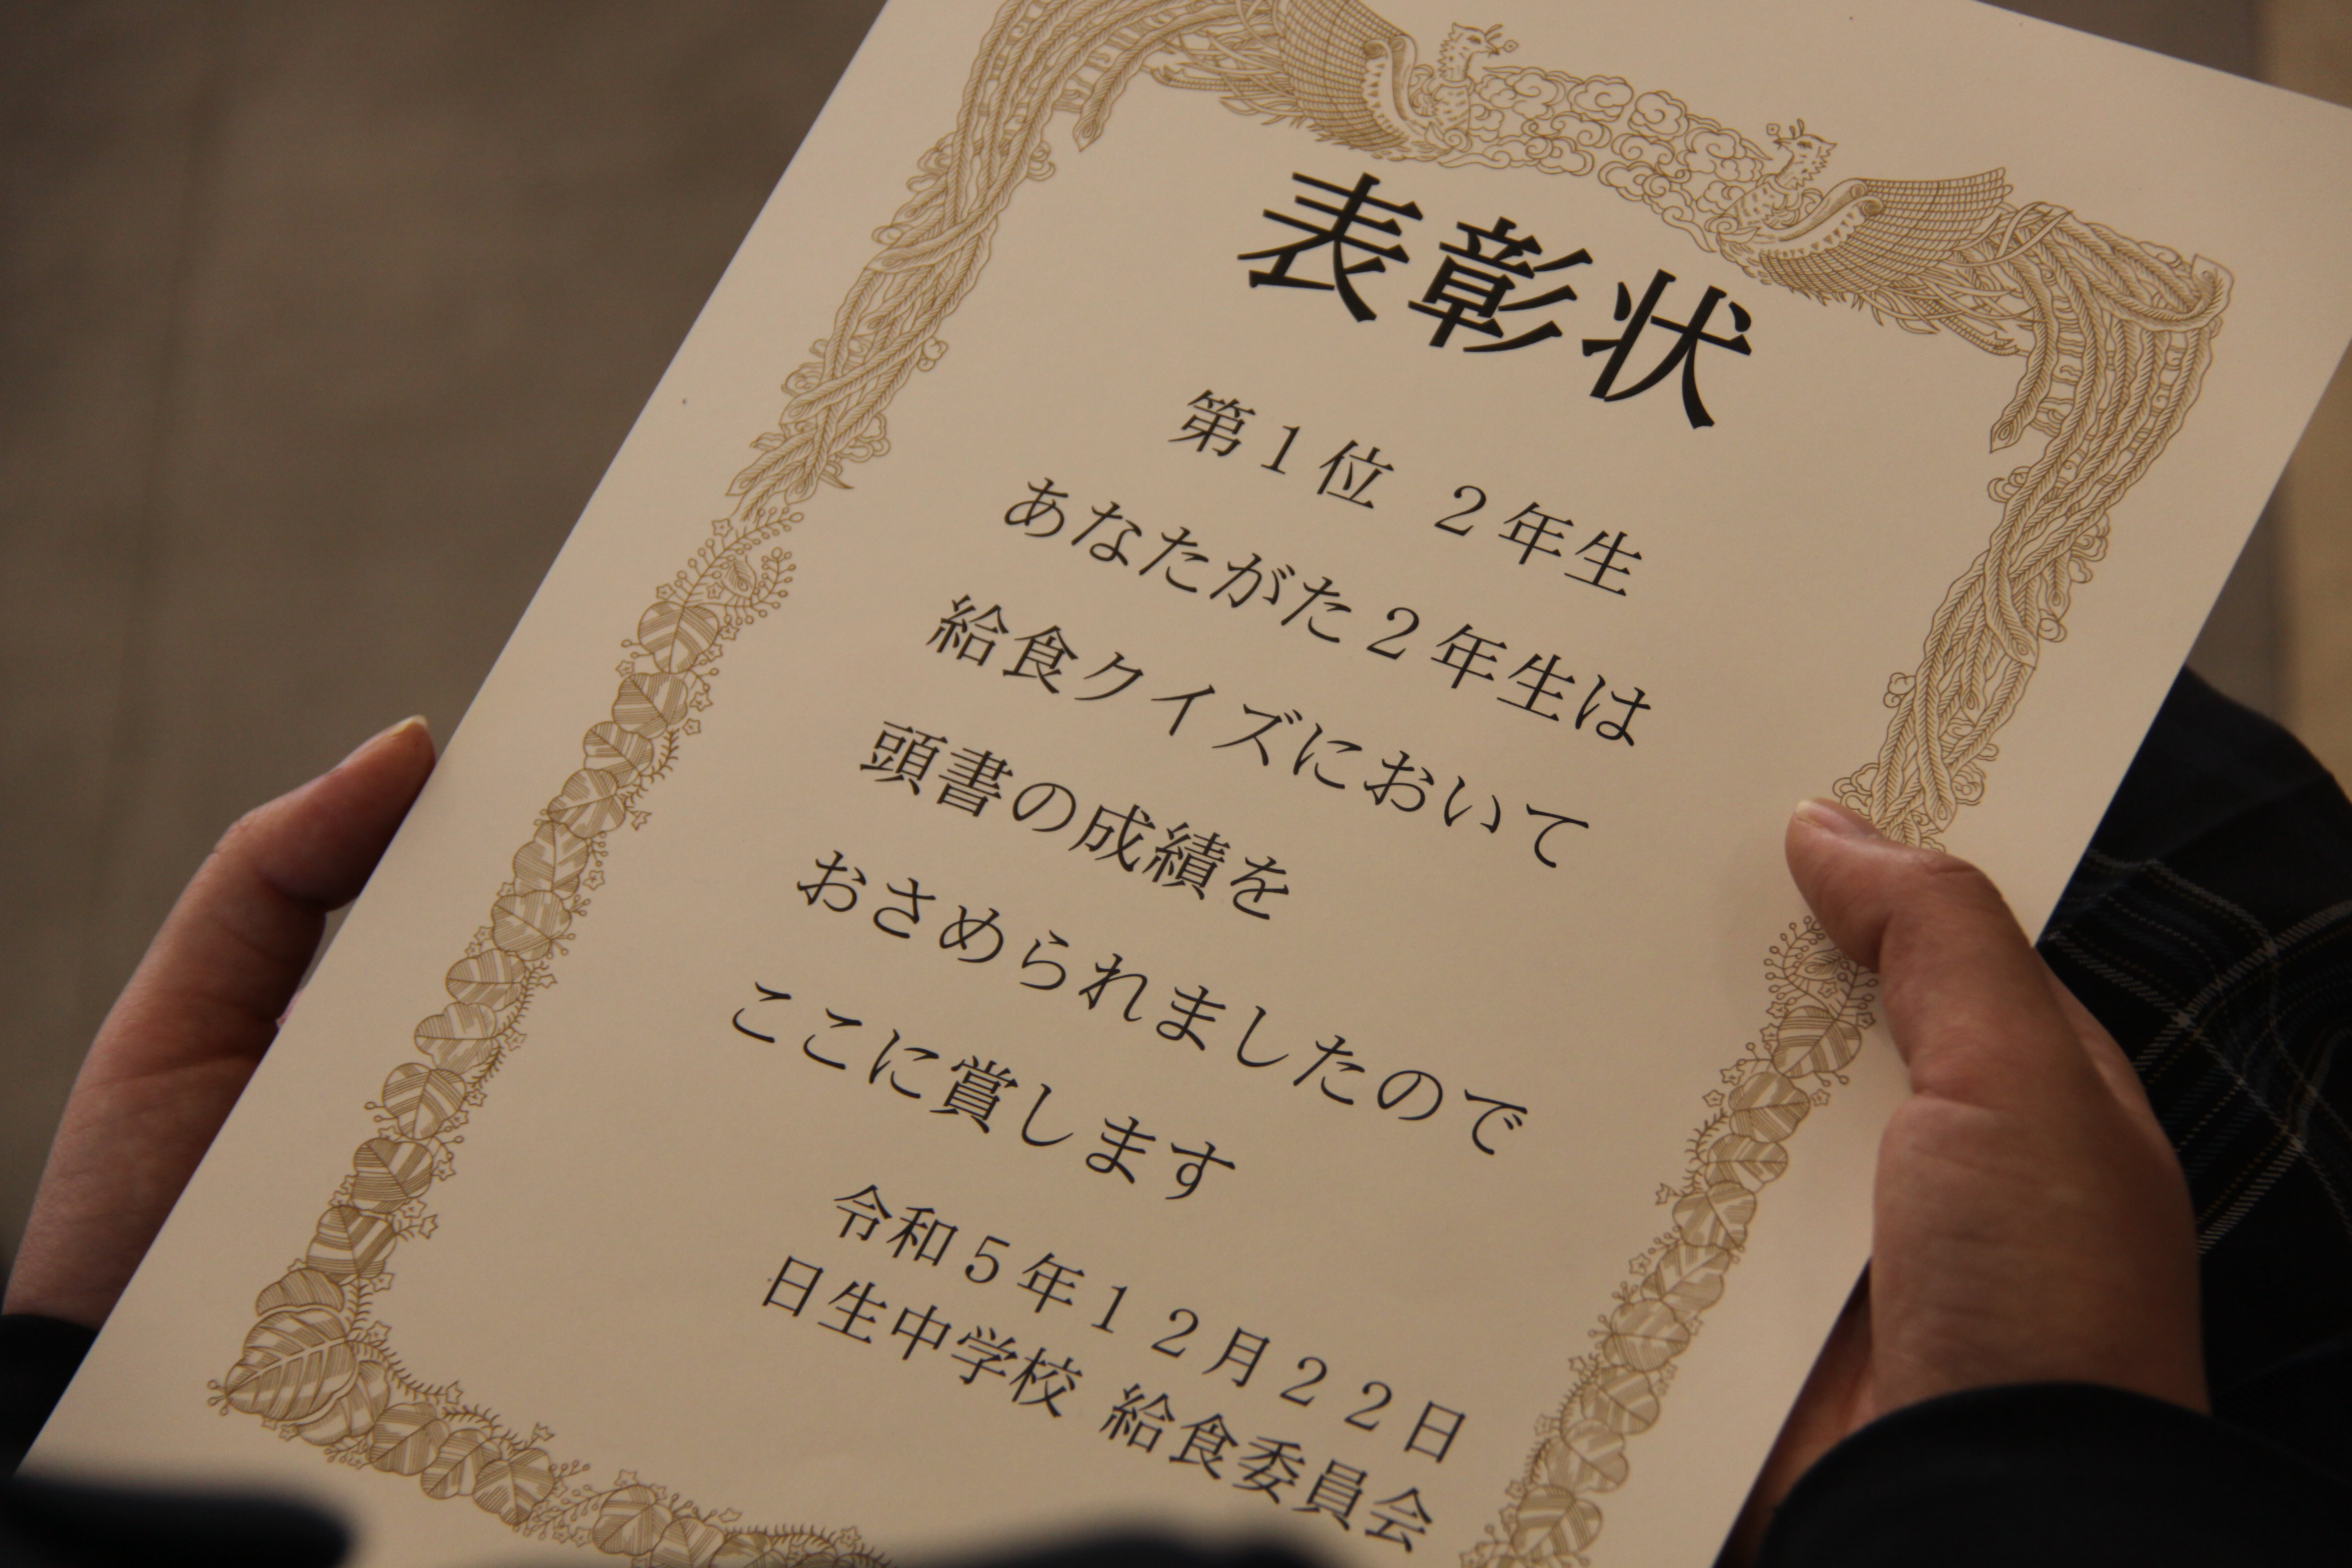 表彰状
第１位　２年生
あなたがた２年生は
給食クイズにおいて
頭書の成績を
おさめられましたので
ここに賞します
令和５年１２月２２日
日生中学校 給食委員会